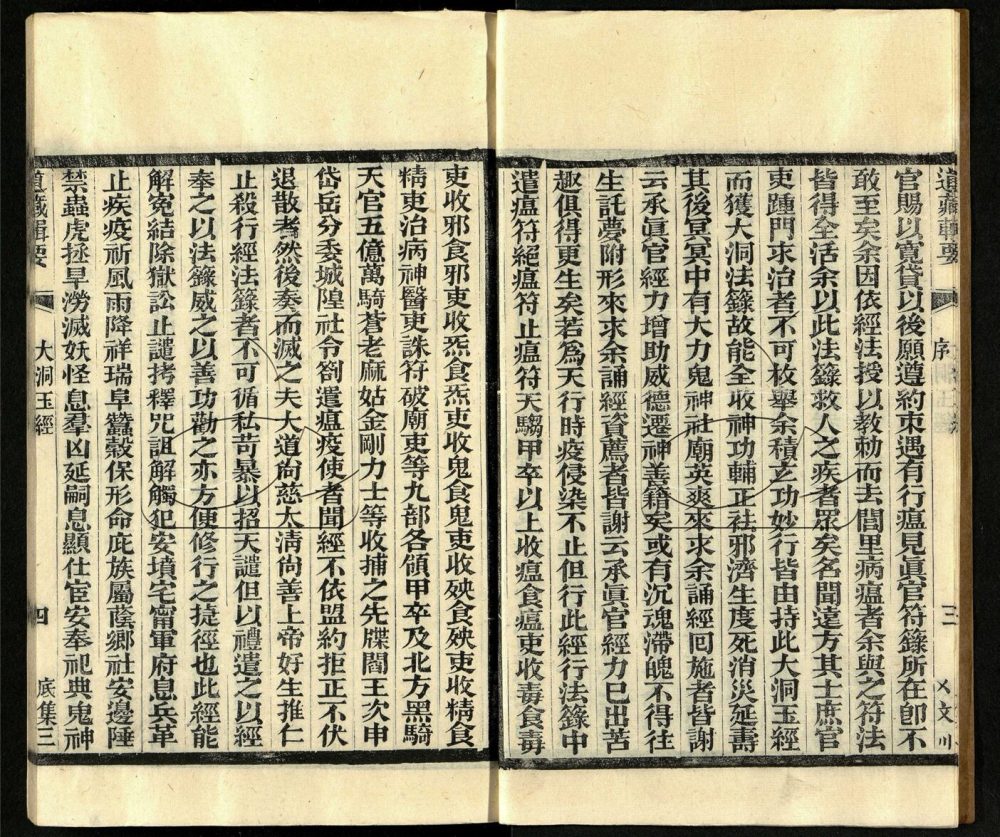 道藏輯要 序 三
官賜以寬貸以後願遵約束遇有行瘟見眞官符籙所在卽不
敢至矣余因依經法授以教勅而去閭里病瘟者余與之符法
皆得全活余以此法籙救人之疾者眾矣名聞遠方其士庶官
吏踵門求治者不可枚舉余積玄功妙行皆由持此大洞玉經
而獲大洞法籙故能全收神功輔正祛邪濟生度死消災延壽
其後冥冥中有大力鬼神社廟英爽來求余誦經回施者皆謝
云承眞官經力增助威德遷神善籍矣或有沉魂滯魄不得往
生託夢附形來求余誦經資薦者皆謝云承眞官經力已出苦
趣俱得更生矣若爲天行時疫侵染不止但行此經行法籙中
遣瘟符絕瘟符止瘟符天騶甲卒以上收瘟食瘟吏收毒食毒
吏收邪食邪吏收炁食炁吏收鬼食鬼吏收殃食殃吏收精食
精吏治病神醫吏誅符破廟吏等九部各領甲卒及北方黑騎
天官五億萬騎蒼老麻姑金剛力士等收捕之先牒閻王次申
岱岳分委城隍社令劄遣瘟疫使者聞經不依盟約拒正不伏
退散者然後奏而滅之夫大道尙慈太淸尙善上帝好生推仁
止殺行經法籙者不可循私苛暴以招天譴但以禮遣之以經
奉之以法籙威之以善功勸之亦方便修行之捷徑也此經能
解冤結除獄訟止譴拷釋咒詛解觸犯安墳宅甯軍府息兵革
止疾疫祈風雨降祥瑞阜蠶穀保形命庇族屬蔭鄉社安邊陲
禁蟲虎拯旱澇滅妖怪息羣凶延嗣息顯仕宦安奉祀典鬼神
道藏輯要 大洞玉經 四 底集三